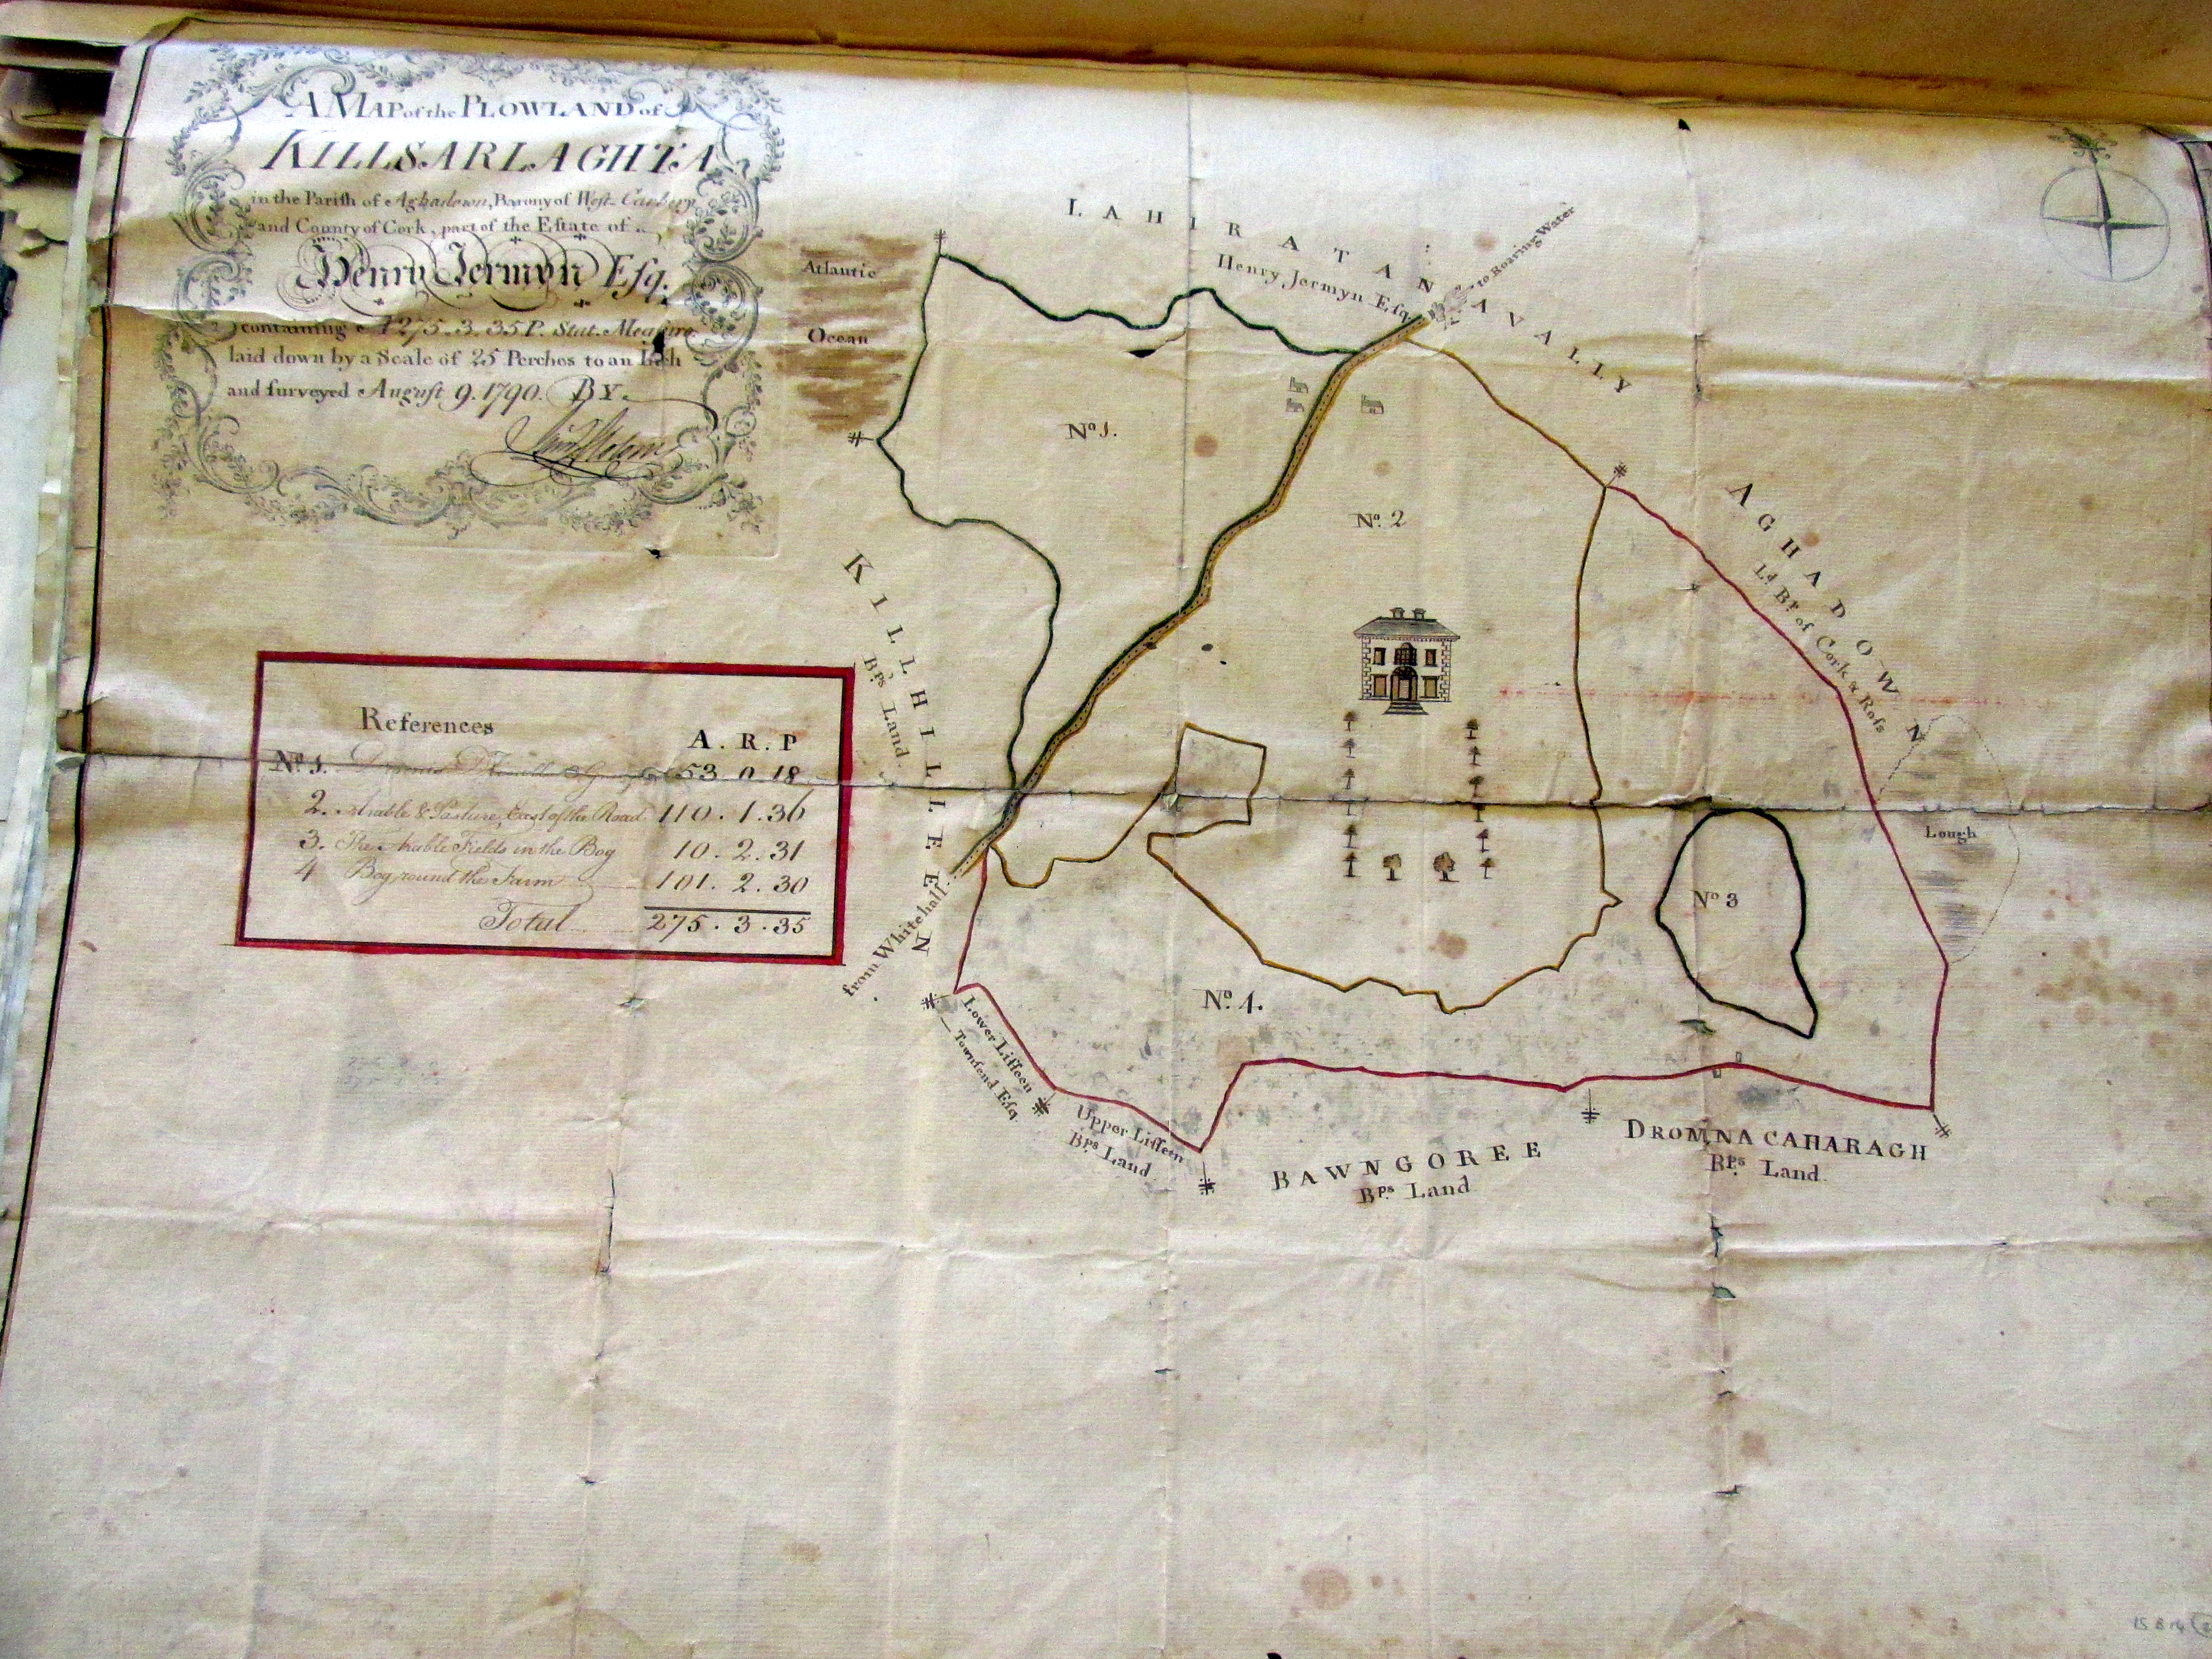 A MAP of the PLOWLAND of
KILLSARLAGHTA
in the Parish of Aghadown, Barony of West-Carbery
and County of Cork, part of the Estate of
Henry Jermyn Esq.
containing A 275. 3. 35 P. Stat. Measure
laid down by a Scale of 25 Perches to an Inch
and surveyed August 9. 1790. BY
References
A. R. P
No. 1. 53 0 18
2. Arable & Pasture, East of the Road 110. 1. 36
3. The Arable Fields in the Bog 10. 2. 31
4 Bog round the Farm 101. 2. 30
Total 275. 3. 35
Atlantic
Ocean
LAHIRATANAVALLY
Henry Jermyn Esq.
to Roaring Water
No. 1.
No. 2
AGHADOWN
Ld. Bp. of Cork & Ross
KILLHILLEEN
Bps. Land
Lough
No 3
from Whitehall
No. 4.
Lower Lisseen
Townsend Esq.
Upper Lisseen
Bps. Land
BAWNGOREE
Bps. Land
DROMNACAHARAGH
Bps. Land